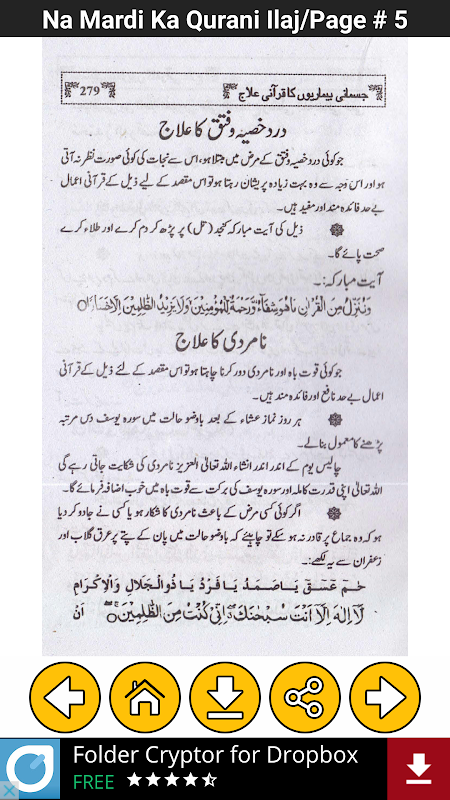 Na Mardi Ka Qurani Ilaj/Page # 5
جسمانی بیماریوں کا قرآنی علاج
279
درد خصیہ و فتق کا علاج
جو کوئی درد خصیہ و فتق کے مرض میں مبتلا ہو، اس سے نجات کی کوئی صورت نظر نہ آتی
ہو اور اس وجہ سے وہ بہت زیادہ پریشان رہتا ہو تو اس مقصد کے لیے ذیل کے قرآنی اعمال
بے حد فائدہ مند اور مفید ہیں۔
ذیل کی آیت مبارکہ کنجد (تل) پر پڑھ کر دم کرے اور طلاء کرے
صحت پائے گا۔
آیت مبارکہ:۔
وَنُنَزِّلُ مِنَ الْقُرْاٰنِ مَا هُوَ شِفَآءٌ وَّرَحْمَةٌ لِّلْمُؤْمِنِیْنَ وَلَا یَزِیْدُ الظّٰلِمِیْنَ اِلَّا خَسَارًا
نامردی کا علاج
جو کوئی قوت باہ اور نامردی دور کرنا چاہتا ہو تو اس مقصد کے لئے ذیل کے قرآنی
اعمال بے حد نافع اور فائدہ مند ہیں۔
ہر روز نماز عشاء کے بعد باوضو حالت میں سورہ یوسف دس مرتبہ
پڑھنے کا معمول بنالے۔
چالیس یوم کے اندر اندر انشاء اللہ تعالیٰ العزیز نامردی کی شکایت جاتی رہے گی
اللہ تعالیٰ اپنی قدرت کاملہ اور سورہ یوسف کی برکت سے قوت باہ میں خوب اضافہ فرمائے گا۔
اگر کوئی کسی مرض کے باعث نامردی کا شکار ہو یا کسی نے جادو کر دیا
ہو کہ وہ جماع پر قادر نہ ہو سکے تو چاہیئے کہ باوضو حالت میں پان کے پتے پر عرق گلاب اور
زعفران سے یہ لکھے:۔
حٰمٓ عٓسٓقٓ یَا صَمَدُ یَا فَرْدُ یَا ذُوالْجَلَالِ وَالْاِکْرَامِ
لَآ اِلٰهَ اِلَّآ اَنْتَ سُبْحٰنَکَ اِنِّیْ کُنْتُ مِنَ الظّٰلِمِیْنَ اَنْ
Folder Cryptor for Dropbox
FREE